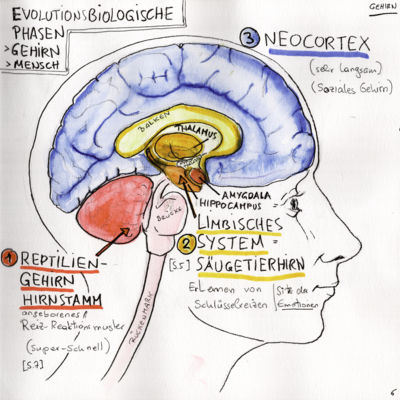 EVOLUTIONSBIOLOGISCHE
PHASEN
>GEHIRN
>MENSCH
GEHIRN
3 NEOCORTEX
(sehr langsam)
(Soziales Gehirn)
BALKEN
THALAMUS
AMYGDALA
HIPPOCAMPUS =
BRÜCKE
2 LIMBISCHES
SYSTEM =
SÄUGETIERHIRN
[S.5]
Erlernen von
Schlüsselreizen
Sitz der
Emotionen
1 REPTILIEN-
GEHIRN
HIRNSTAMM
angeborenes
Reiz-Reaktionsmuster
(Super-Schnell)
[S.7]
RÜCKENMARK
6